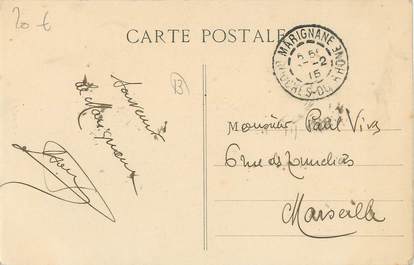 20 €
CARTE POSTALE
MARIGNANE
2 5
-2
15
BCHES-DU-RHONE
B
Souvenir
de Marignane
Monsieur Paul Vivs
6 rue des
Marseille